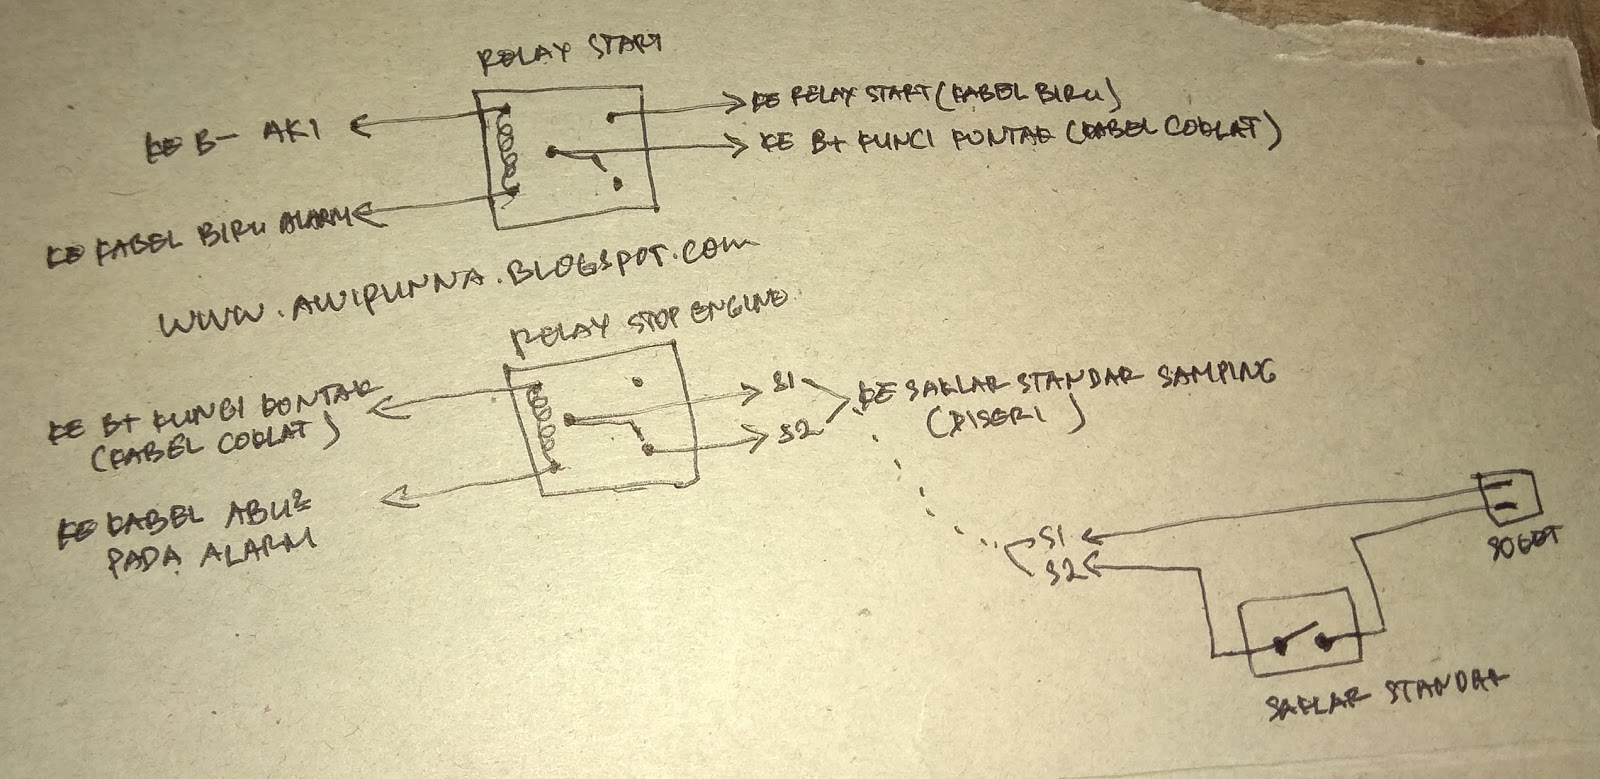 RELAY START
KE B- AKI
KE RELAY START (KABEL BIRU)
KE B+ KUNCI KONTAK (KABEL COKLAT)
KE KABEL BIRU ALARM
WWW.AWIPUNNA.BLOGSPOT.COM
RELAY STOP ENGINE
KE B+ KUNCI KONTAK
(KABEL COKLAT)
S1
S2
KE SAKLAR STANDAR SAMPING
(DISERI)
KE KABEL ABU2
PADA ALARM
S1
S2
SOGET
SAKLAR STANDAR